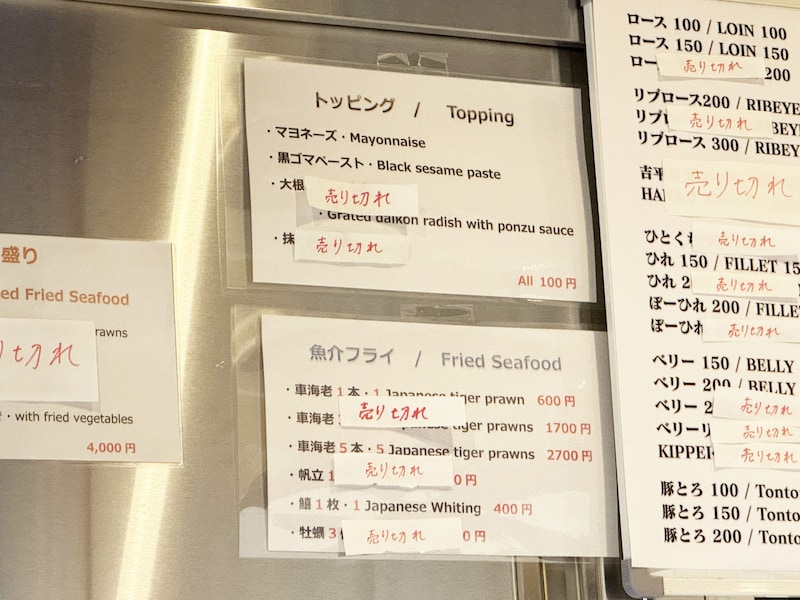 盛り
ed Fried Seafood
rawns
り切れ
・with fried vegetables
4,000円
トッピング / Topping
・マヨネーズ・Mayonnaise
・黒ゴマペースト・Black sesame paste
・大根
売り切れ
・Grated daikon radish with ponzu sauce
・抹
売り切れ
All 100円
魚介フライ / Fried Seafood
・車海老1本・1 Japanese tiger prawn 600円
・車海老
売り切れ
panese tiger prawns 1700円
・車海老5本・5 Japanese tiger prawns 2700円
・帆立1
売り切れ
0円
・鱚1枚・1 Japanese Whiting 400円
・牡蠣3
売り切れ
0円
ロース 100 / LOIN 100
ロース 150 / LOIN 150
ロー
売り切れ
200
リブロース200 / RIBEYE
リブ
売り切れ
BEY
リブロース 300 / RIBEY
吉平
HA
売り切れ
ひとく
売り切れ
ひれ 150 / FILLET 15
ひれ 2
売り切れ
ぼーひれ 200 / FILLE
ぼーひれ
売り切れ
ベリー 150 / BELLY
ベリー 200 / BELLY
ベリー 2
売り切れ
ベリーリ
売り切れ
KIPPEI
売り切れ
豚とろ 100 / Tonto
豚とろ 150 / Tonto
豚とろ 200 / Tonto